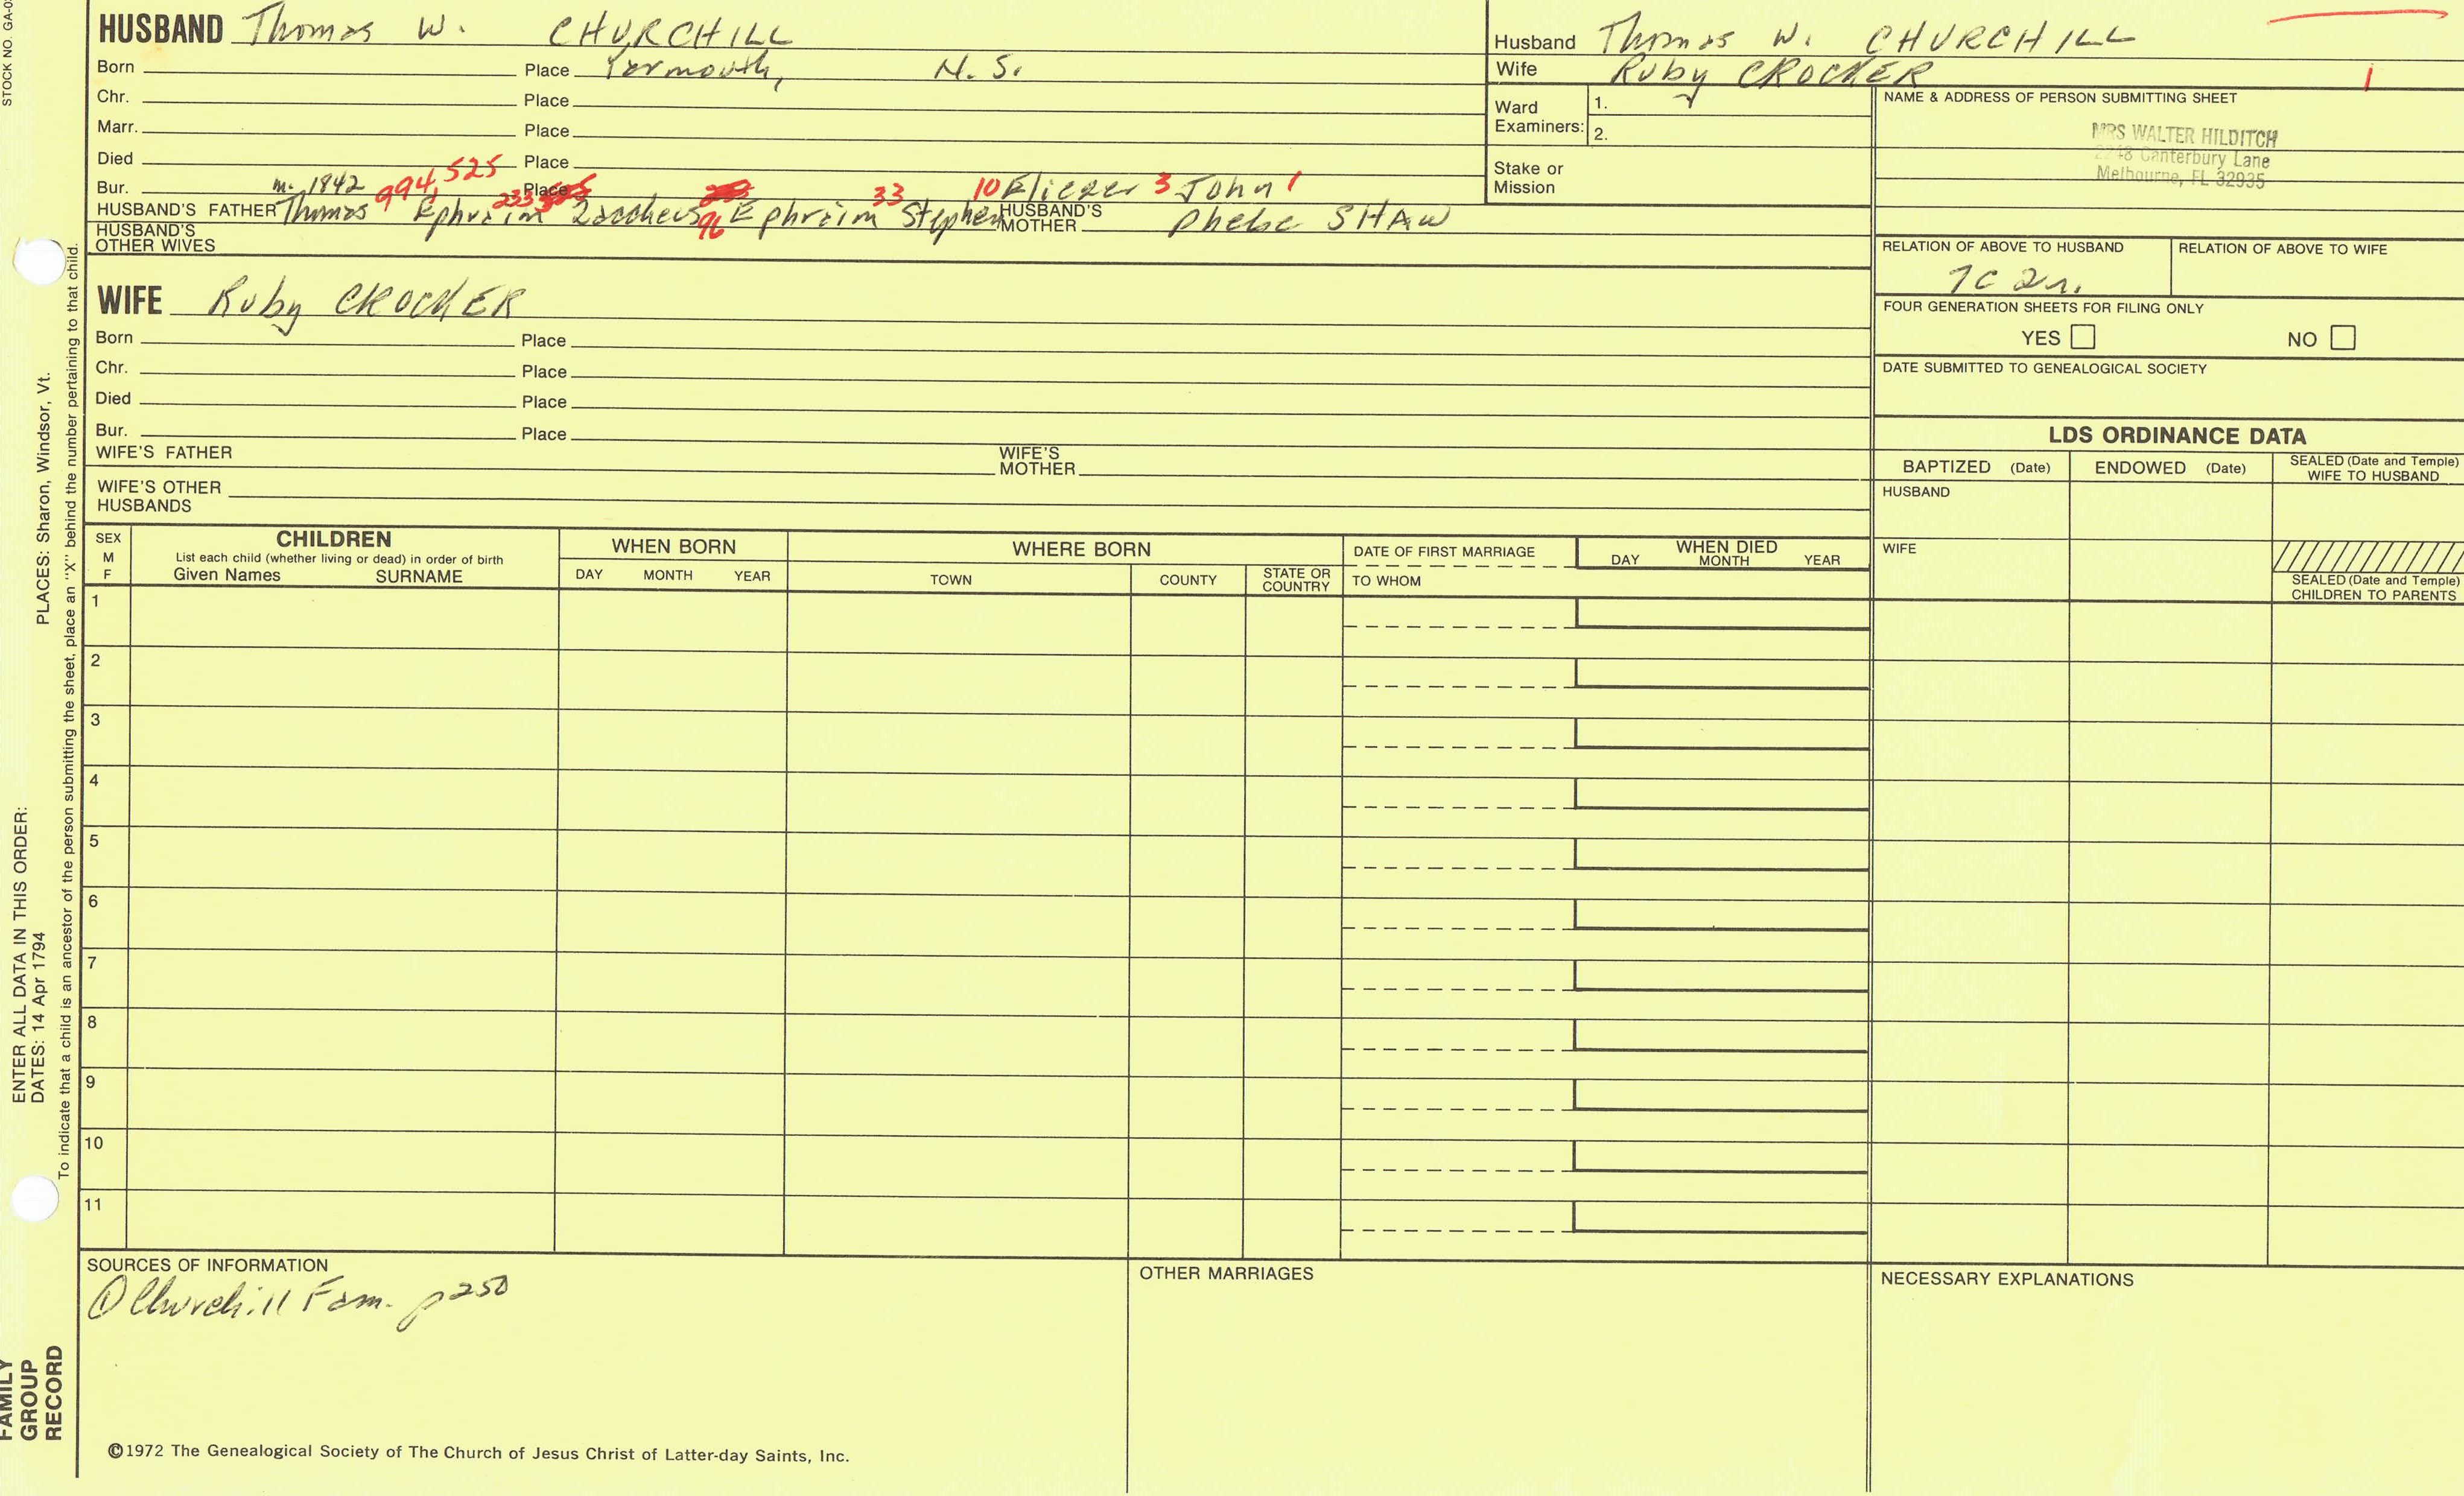 STOCK NO. GA-0
HUSBAND Thomas W. CHURCHILL
Born Place Yarmouth, N.S.
Chr. Place
Marr. Place
Died Place
Bur. Place
m. 1842 994, 525 233 33 10 Eliezer 3 John 1
HUSBAND'S FATHER Thomas Ephraim Zaccheus 96 Ephraim Stephen HUSBAND'S MOTHER Phebe SHAW
HUSBAND'S OTHER WIVES
Husband Thomas W. CHURCHILL
Wife Ruby CROCKER
1
Ward Examiners: 1.
2.
Stake or Mission
NAME & ADDRESS OF PERSON SUBMITTING SHEET
MRS WALTER HILDITCH
2248 Canterbury Lane
Melbourne, FL 32935
RELATION OF ABOVE TO HUSBAND RELATION OF ABOVE TO WIFE
7C 2r.
FOUR GENERATION SHEETS FOR FILING ONLY
YES NO
DATE SUBMITTED TO GENEALOGICAL SOCIETY
WIFE Ruby CROCKER
Born Place
Chr. Place
Died Place
Bur. Place
WIFE'S FATHER WIFE'S MOTHER
WIFE'S OTHER HUSBANDS
LDS ORDINANCE DATA
BAPTIZED (Date) ENDOWED (Date) SEALED (Date and Temple) WIFE TO HUSBAND
HUSBAND
WIFE
SEALED (Date and Temple) CHILDREN TO PARENTS
SEX M F
CHILDREN
List each child (whether living or dead) in order of birth
Given Names SURNAME
WHEN BORN
DAY MONTH YEAR
WHERE BORN
TOWN COUNTY STATE OR COUNTRY
DATE OF FIRST MARRIAGE
TO WHOM
WHEN DIED
DAY MONTH YEAR
1
2
3
4
5
6
7
8
9
10
11
SOURCES OF INFORMATION
① Churchill Fam. p 250
OTHER MARRIAGES
NECESSARY EXPLANATIONS
©1972 The Genealogical Society of The Church of Jesus Christ of Latter-day Saints, Inc.
FAMILY GROUP RECORD
ENTER ALL DATA IN THIS ORDER:
DATES: 14 Apr 1794
PLACES: Sharon, Windsor, Vt.
To indicate that a child is an ancestor of the person submitting the sheet, place an "X" behind the number pertaining to that child.